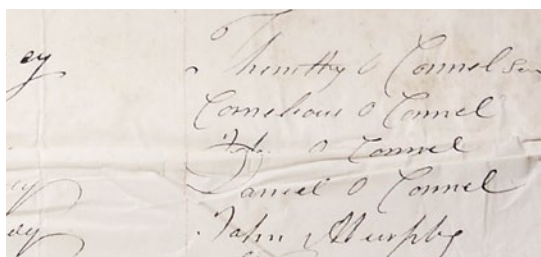 ey
Thimthy O Connel Sen
Cornelious O Connel
O Connel
Daniel O Connel
John Murphy